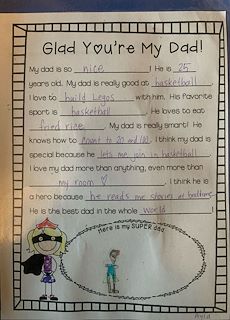 Glad You're My Dad!
My dad is so nice! He is 25
years old. My dad is really good at basketball.
I love to build Legos with him. His favorite
sport is basketball. He loves to eat
fried rice. My dad is really smart! He
knows how to count to 20 and 100. I think my dad is
special because he lets me join in basketball.
I love my dad more than anything, even more than
my room ♡. I think he is
a hero because he reads me stories at bedtime.
He is the best dad in the whole world!
Here is my SUPER dad